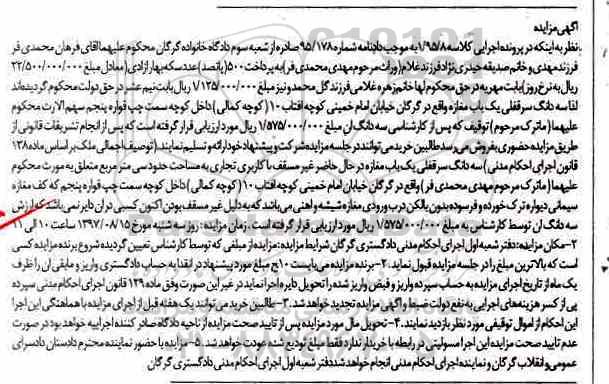 آگهی مزایده
نظر به اینکه در پرونده اجرایی کلاسه ۱/۹۵/۸ به موجب دادنامه شماره ۹۵/۱۷۸ صادره از شعبه سوم دادگاه خانواده گرگان محکوم علیهما آقای فرهان محمدی فر
فرزند مهدی و خانم صدیقه حیدری نژاد فرزند غلام (وراث مرحوم مهدی محمدی فر) به پرداخت ۵۰۰ (پانصد) عدد سکه بهار آزادی (معادل مبلغ ۲۲/۵۰۰/۰۰۰/۰۰۰
ریال به نرخ روز) بابت مهریه در حق محکوم لها خانم زهره غلامی فرزند گل محمد و نیز مبلغ ۱/۱۲۵/۰۰۰/۰۰۰ ریال بابت نیم عشر در حق دولت محکوم گردیده اند
لذا سه دانگ سرقفلی یک باب مغازه واقع در گرگان خیابان امام خمینی کوچه آفتاب ۱۰ (کوچه کمالی) داخل کوچه سمت چپ قواره پنجم سهم الارث محکوم
علیهما (ماترک مرحوم) توقیف که پس از کارشناسی سه دانگ آن مبلغ ۱/۵۷۵/۰۰۰/۰۰۰ ریال مورد ارزیابی قرار گرفته است که پس از انجام تشریفات قانونی از
طریق مزایده حضوری بفروش می رسد طالبین خرید می توانند در جلسه مزایده شرکت و پیشنهاد خود را ارائه و تسلیم نمایند. (توصیف اجمالی ملک بر اساس ماده ۱۳۸
قانون اجرای احکام مدنی) سه دانگ سرقفلی یک باب مغازه در حال حاضر غیر مسقف با کاربری تجاری به مساحت حدود سی متر مربع متعلق به مورث محکوم
علیهما (ماترک مرحوم مهدی محمدی فر) واقع در گرگان خیابان امام خمینی کوچه آفتاب ۱۰ (کوچه کمالی) داخل کوچه سمت چپ قواره پنجم که کف مغازه
سیمانی دیواره ترک خورده و فرسوده بدون بالکن درب ورودی مغازه شیشه و آهنی می باشد که به دلیل غیر مسقف بودن اکنون کسبی در آن دایر نمی باشد که ارزش
سه دانگ آن توسط کارشناس به مبلغ ۱/۵۷۵/۰۰۰/۰۰۰ ریال مورد ارزیابی قرار گرفته است. زمان مزایده: روز سه شنبه مورخ ۱۳۹۷/۰۸/۱۵ ساعت ۱۰ الی ۱۱
۲-مکان مزایده: دفتر شعبه اول اجرای احکام مدنی دادگستری گرگان شرایط مزایده: مزایده از مبلغی که توسط کارشناس تعیین گردیده شروع برنده مزایده کسی
است که بالاترین مبلغ را در جلسه مزایده قبول نماید. ۲-برنده مزایده می بایست ۱۰٪ مبلغ مورد پیشنهاد در انقدا به حساب دادگستری واریز و مابقی آن را ظرف
یک ماه از تاریخ اجرای مزایده به حساب سپرده واریز و قبض واریز شده را تحویل دایره اجرا نماید در غیر این صورت وفق ماده ۱۲۹ قانون اجرای احکام مدنی سپرده
پی از کسر هزینه های اجرایی به نفع دولت ضبط و آگهی مزایده تجدید خواهد شد. ۳-طالبین خرید می توانند یک هفته قبل از اجرای مزایده با هماهنگی این اجرا
این احکام از اموال توقیفی مورد نظر بازدید نمایند. ۴-تحویل مال مورد مزایده پس از تایید صحت مزایده از ناحیه دادگاه صادر کننده اجراییه خواهد بود در صورت
عدم تایید صحت مزایده این اجرا مسولیتی در رابطه با خریدار ندارد فقط مبلغ تودیع شده عودت خواهد شد. ۵-مزایده با حضور نماینده محترم دادستان دادسرای
عمومی و انقلاب گرگان و نماینده اجرای احکام مدنی انجام خواهد شد دفتر شعبه اول اجرای احکام مدنی دادگستری گرگان